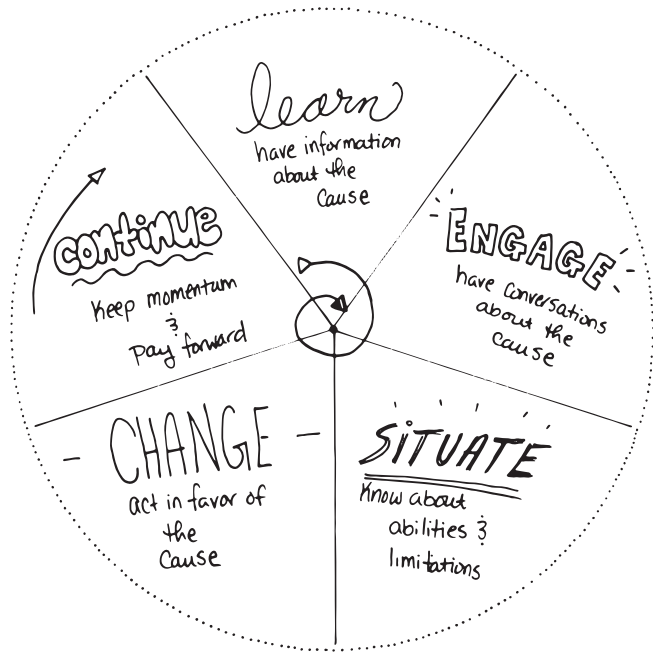 learn
have information
about the
cause
ENGAGE
have conversations
about the
cause
SITUATE
Know about
abilities &
limitations
CHANGE
act in favor of
the
Cause
continue
Keep momentum
&
pay forward